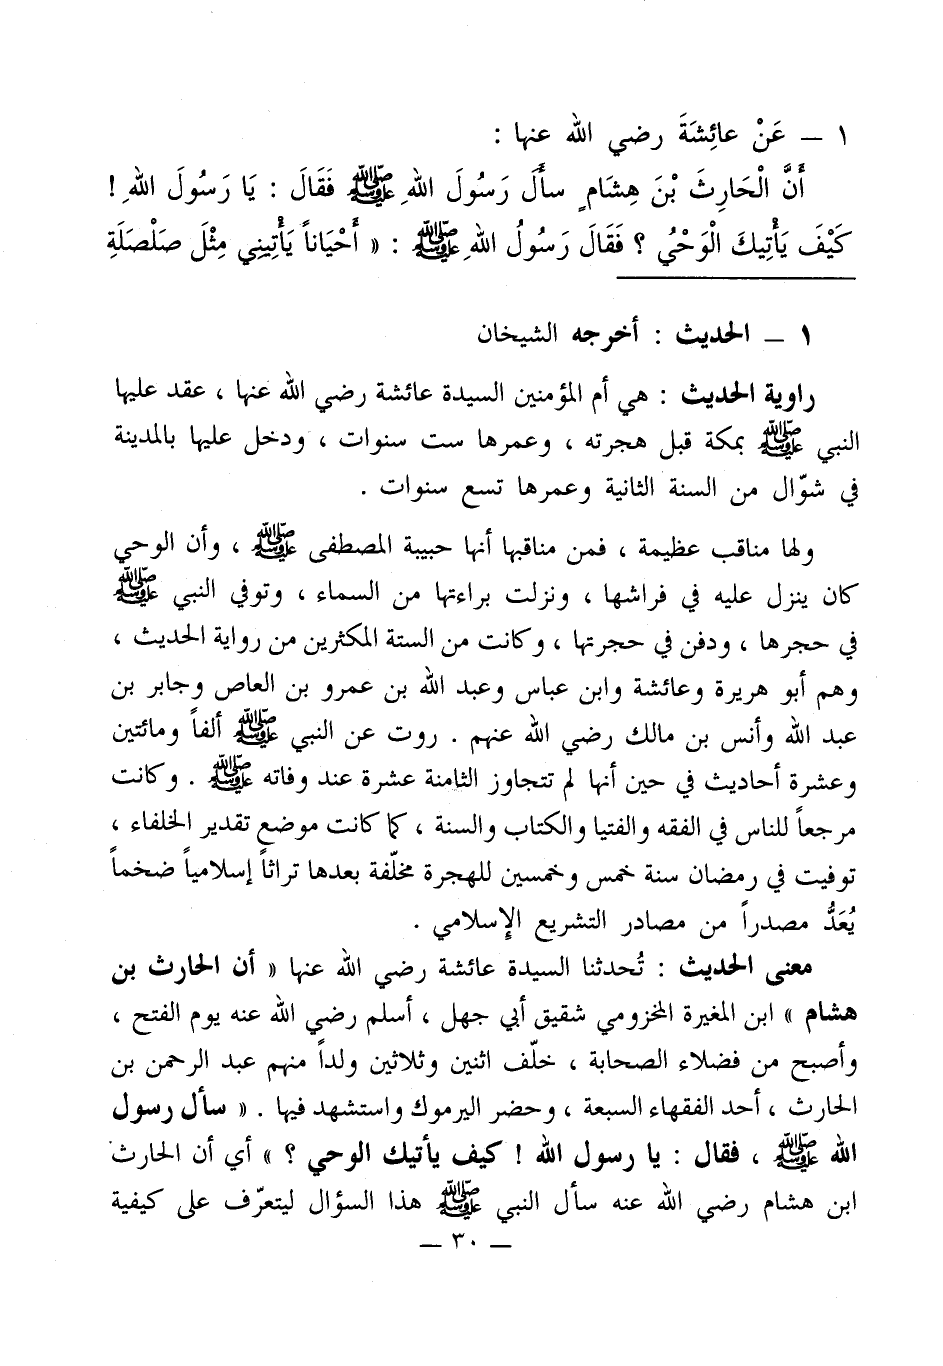 ١ ــ عَنْ عائِشَةَ رضي الله عنها :
أَنَّ الْحَارِثَ بْنَ هِشَامٍ سأَلَ رَسُولَ اللهِ ﷺ فَقَالَ : يَا رَسُولَ اللهِ !
كَيْفَ يَأْتِيكَ الْوَحْيُ ؟ فَقَالَ رَسُولُ اللهِ ﷺ : « أَحْيَاناً يَأْتِينِي مِثْلَ صَلْصَلَةِ
١ ــ الحديث : أخرجه الشيخان
راوية الحديث : هي أم المؤمنين السيدة عائشة رضي الله عنها ، عقد عليها
النبي ﷺ بمكة قبل هجرته ، وعمرها ست سنوات ، ودخل عليها بالمدينة
في شوّال من السنة الثانية وعمرها تسع سنوات .
ولها مناقب عظيمة ، فمن مناقبها أنها حبيبة المصطفى ﷺ ، وأن الوحي
كان ينزل عليه في فراشها ، ونزلت براءتها من السماء ، وتوفي النبي ﷺ
في حجرها ، ودفن في حجرتها ، وكانت من الستة المكثرين من رواية الحديث ،
وهم أبو هريرة وعائشة وابن عباس وعبد الله بن عمرو بن العاص وجابر بن
عبد الله وأنس بن مالك رضي الله عنهم . روت عن النبي ﷺ ألفاً ومائتين
وعشرة أحاديث في حين أنها لم تتجاوز الثامنة عشرة عند وفاته ﷺ . وكانت
مرجعاً للناس في الفقه والفتيا والكتاب والسنة ، كما كانت موضع تقدير الخلفاء ،
توفيت في رمضان سنة خمس وخمسين للهجرة مخلّفة بعدها تراثاً إسلامياً ضخماً
يُعَدُّ مصدراً من مصادر التشريع الإسلامي .
معنى الحديث : تُحدثنا السيدة عائشة رضي الله عنها « أن الحارث بن
هشام » ابن المغيرة المخزومي شقيق أبي جهل ، أسلم رضي الله عنه يوم الفتح ،
وأصبح من فضلاء الصحابة ، خلّف اثنين وثلاثين ولداً منهم عبد الرحمن بن
الحارث ، أحد الفقهاء السبعة ، وحضر اليرموك واستشهد فيها . « سأل رسول
الله ﷺ ، فقال : يا رسول الله ! كيف يأتيك الوحي ؟ » أي أن الحارث
ابن هشام رضي الله عنه سأل النبي ﷺ هذا السؤال ليتعرّف على كيفية
ــ ٣٠ ــ